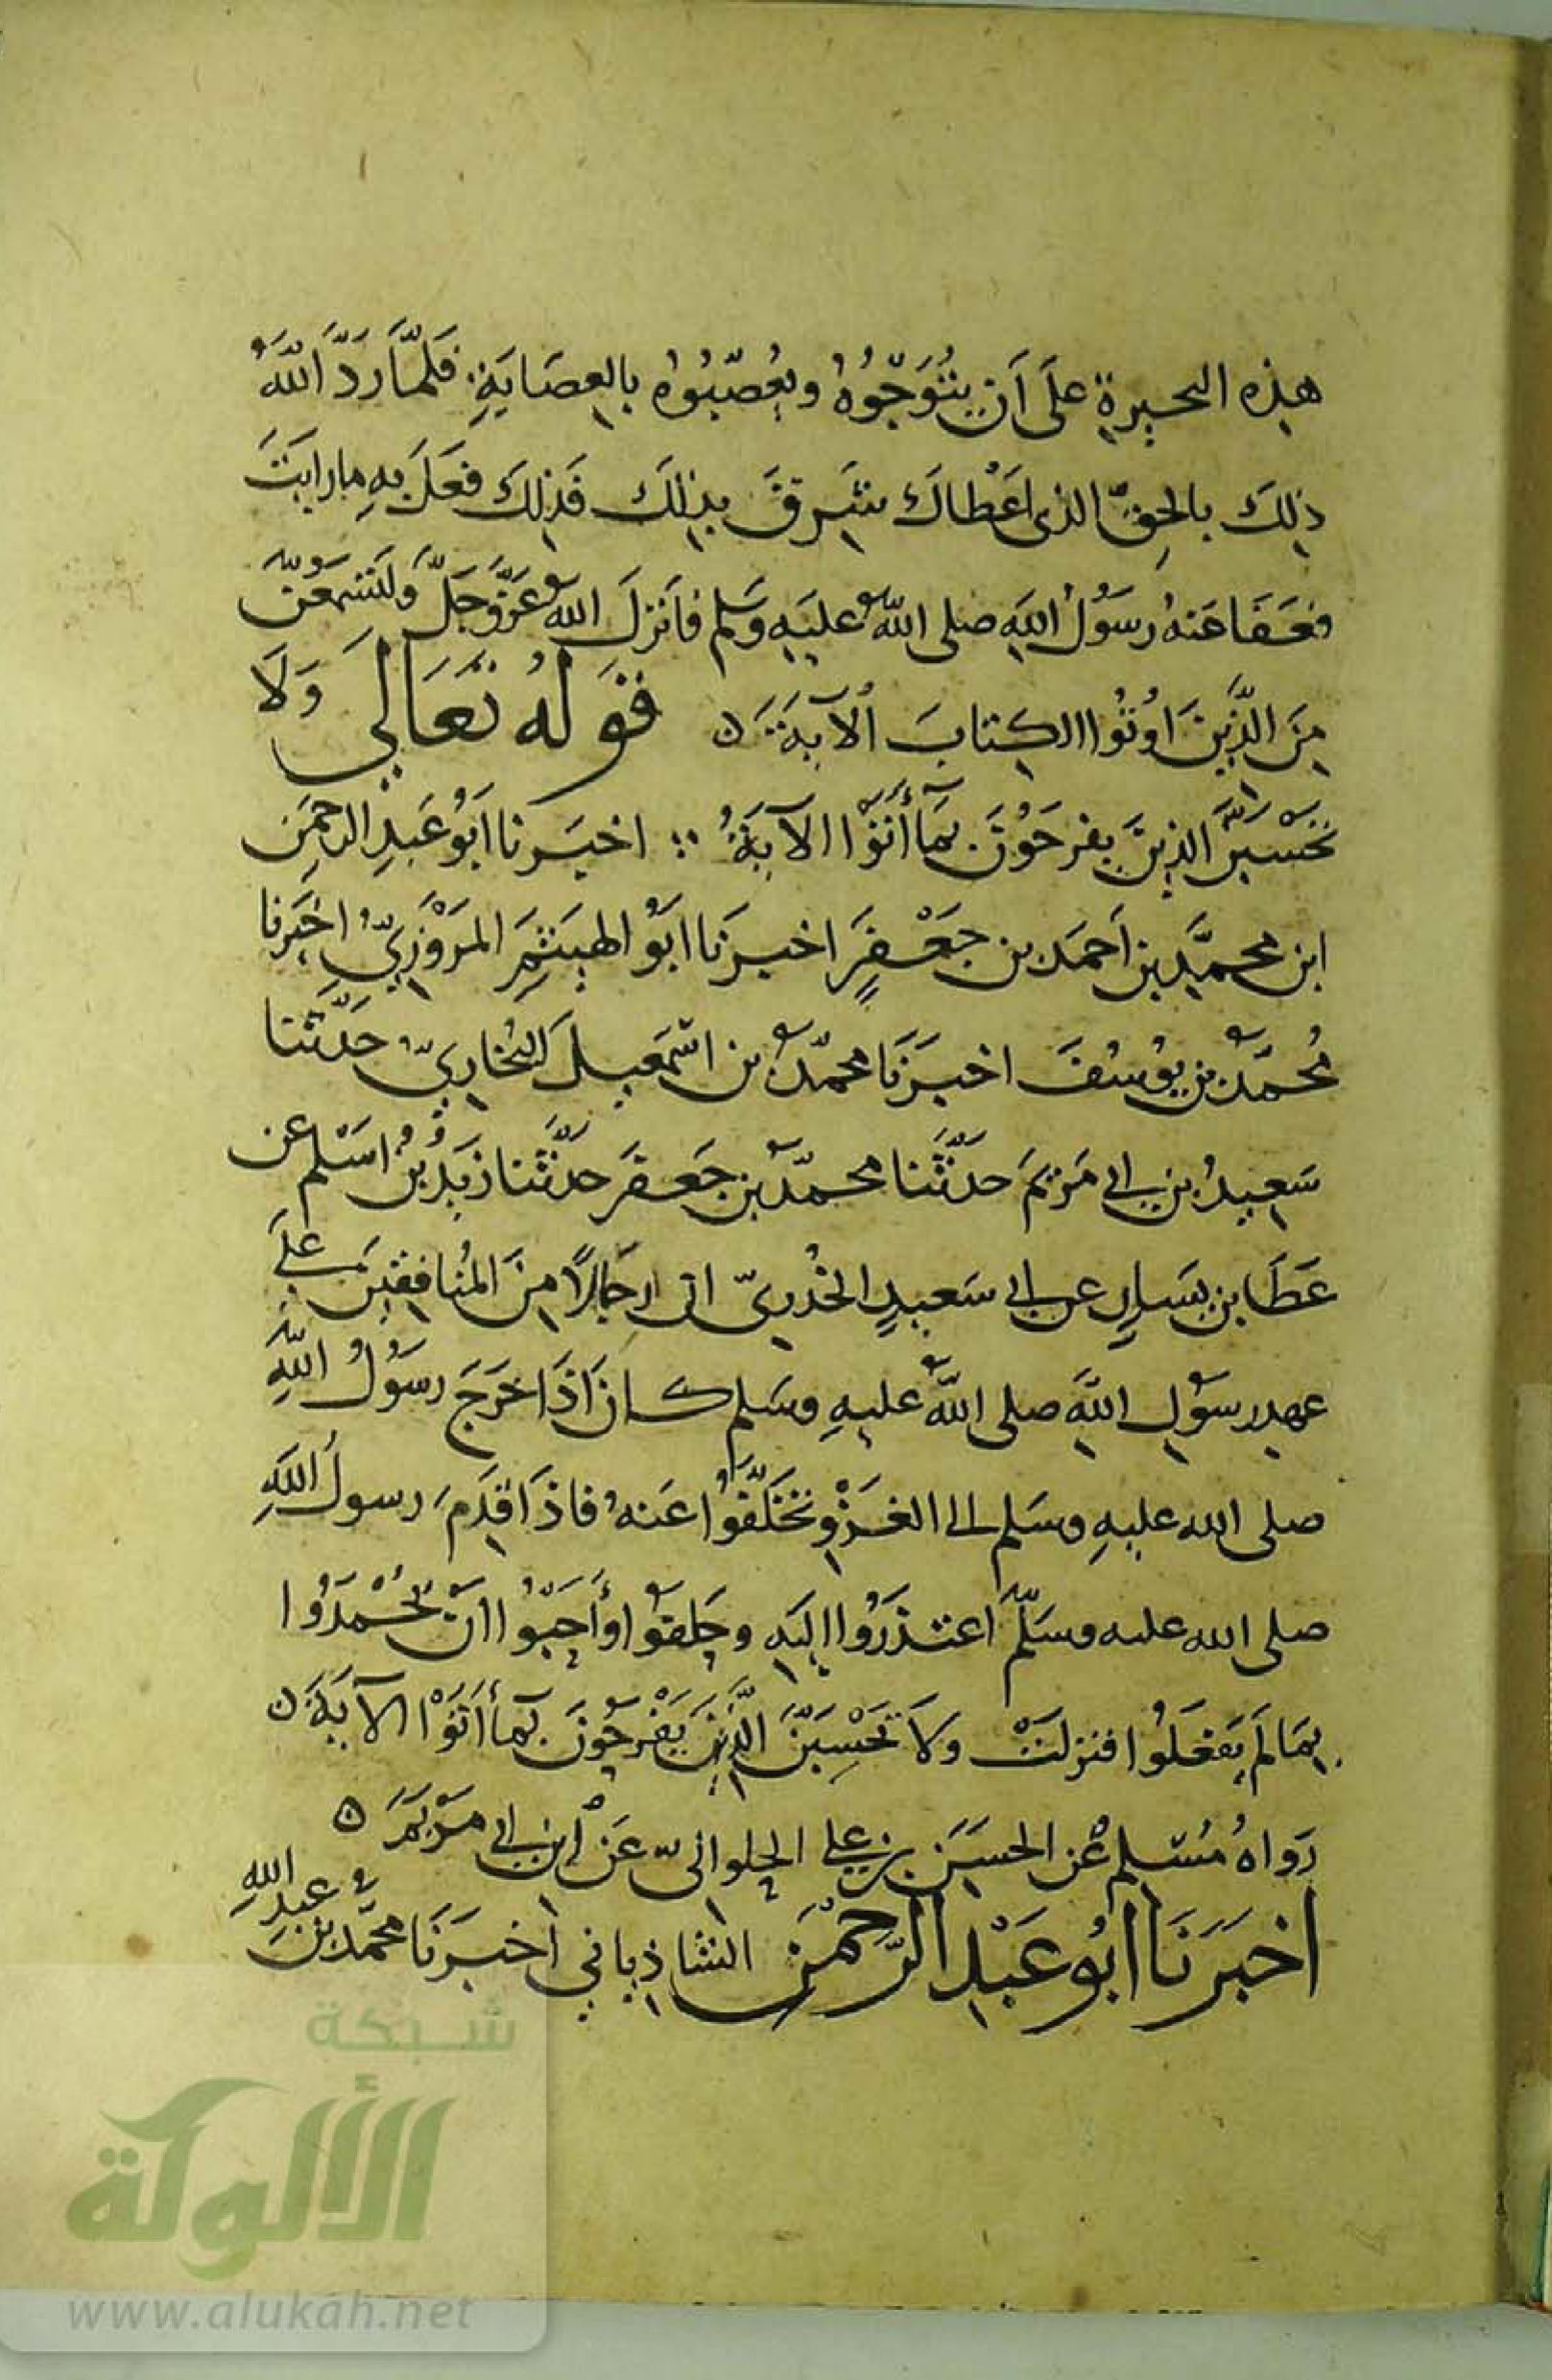 هذه البحيرة عَلَى اَن يُتَوِّجُوهُ ويُعَصّبُوه بالعِصَابَةِ فَلَمَّا رَدَّ اللّهُ
ذلكَ بالحقّ الذى اَعْطاكَ شَرِقَ بذلكَ فَذلكَ فعَلَ بهِ ما رايتَ
فعَفَا عَنهُ رسُولُ اللهِ صلى اللهُ عليهِ وسَلم فاَنزلَ اللهُ عَزَّوجَلَّ ولَتَسْمَعُنَّ
مِنَ الَّذِينَ اوُتُوا الكِتابَ الآيةَ ن قَولُهُ تَعَالي وَلَا
تحْسَبَنَّ الذينَ يفرَحُونَ بِمَا أَتَوْا الآيةُ اخبَرنا اَبُو عَبدِ الرحمَن
ابن محمَّد بن اَحمَد بن جَعْفَرٍ اخبرَنا ابُو الهيثَمِ المَرْوَزِيّ اخبَرنا
مُحمَّد بن يوُسُفَ اخبرَنَا محمّدُ بن اسْمَعِيلَ البُخاريّ حَدَّثنا
سَعيدُ بن ابي مَريَمَ حدَّثَنا محمّدُ بن جَعفَر حدَّثَنا زيَدُ بنُ اسْلم عن
عَطَا بن يسَارٍ عن ابي سَعيدٍ الخُدريّ ان رجَالاً مِنَ المُنافِقينَ عَلَي
عهدِ رسُولِ اللهِ صلى اللهُ عليهِ وسَلم كانَ اذَا خرَجَ رسُولُ اللهِ
صلى الله عليهِ وسَلم الى الغَزْوِ تخَلَّفُوا عَنهُ فاذَا قدِمَ رسولُ اللهِ
صلى الله عليه وسَلّم اَعتذَرُوا إليَهِ وحَلفوُا وأَحَبّوُا اَن يُحْمَدُوا
بِمَا لَم يَفعَلُوا فنزلَتْ وَلاَ تَحْسِبَنَّ الَّذينَ يَفْرَحُونَ بَمَا أَتَوْا الآيَةَ ن
رَواهُ مُسْلم عَن الحسَن بن علي الحلوانىّ عَن ابن ابي مَرْيَمَ ه
اخبَرَنَا ابُو عَبْد الرَّحمْن الشاذياني اَخبَرَنَا محمَّد بن عَبدِ اللهِ
شبكة
الألوكة
www.alukah.net